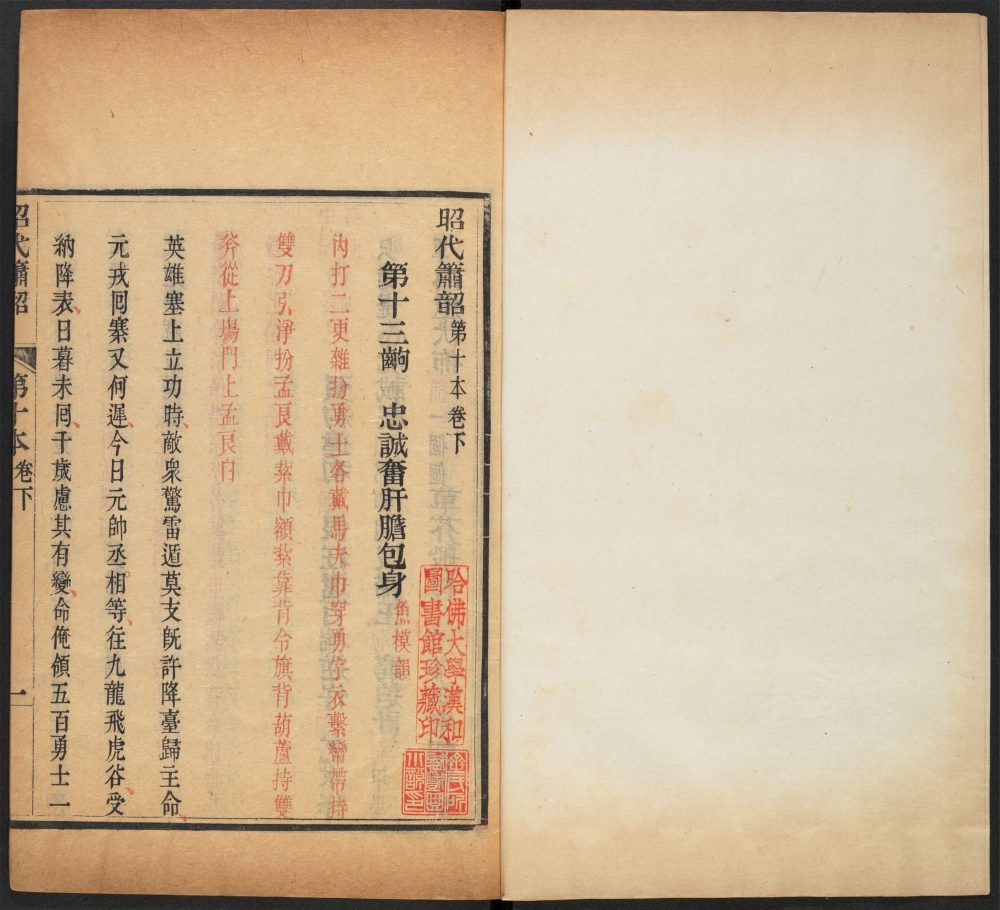 昭代簫韶第十本卷下
第十三齣　忠誠奮肝膽包身　魚模韻
內打二更雜扮勇士各戴馬夫巾穿勇字衣繫帶持
雙刀引淨扮孟良戴紮巾額紮靠背令旗背葫蘆持雙
斧從上塲門上孟良白
英雄塞上立功時敵衆驚雷遁莫支旣許降臺歸主命
元戎囘寨又何遲今日元帥丞相等往九龍飛虎谷受
納降表日暮未囘千歲慮其有變命俺領五百勇士一
昭代簫韶　第十本卷下　一
哈佛大學漢和
圖書館珍藏印